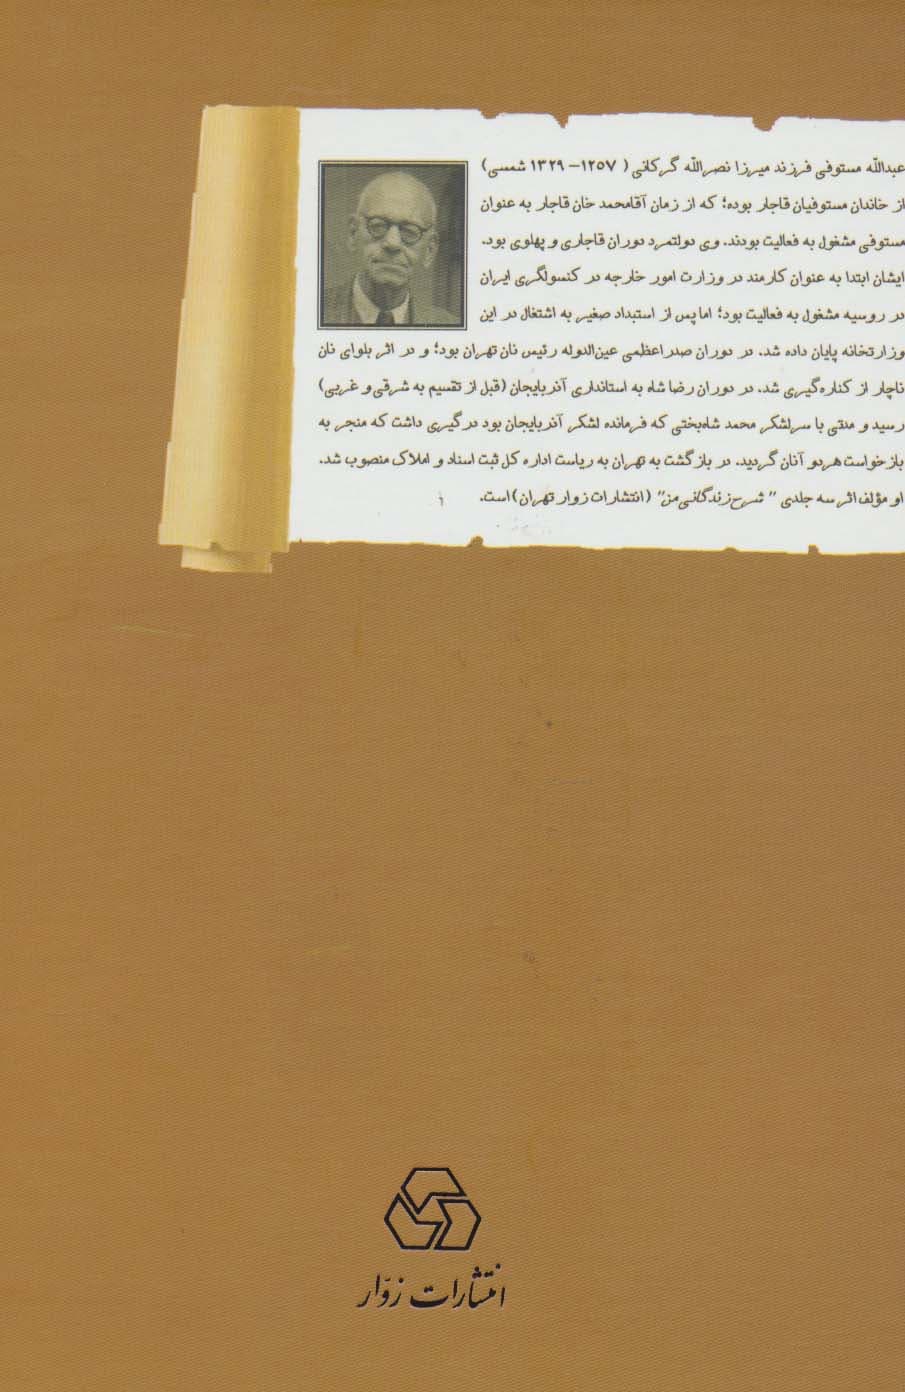 عبداللّه مستوفی فرزند میرزا نصراللّه گرکانی ( ۱۲۵۷- ۱۳۲۹ شمسی)
از خاندان مستوفیان قاجار بوده؛ که از زمان آقامحمد خان قاجار به عنوان
مستوفی مشغول به فعالیت بودند. وی دولتمرد دوران قاجاری و پهلوی بود.
ایشان ابتدا به عنوان کارمند در وزارت امور خارجه در کنسولگری ایران
در روسیه مشغول به فعالیت بود؛ اما پس از استبداد صغیر به اشتغال در این
وزارتخانه پایان داده شد. در دوران صدراعظمی عین‌الدوله رئیس نان تهران بود؛ و در اثر بلوای نان
ناچار از کناره‌گیری شد. در دوران رضا شاه به استانداری آذربایجان (قبل از تقسیم به شرقی و غربی)
رسید و مدتی با سرلشکر محمد شاه‌بختی که فرمانده لشکر آذربایجان بود درگیری داشت که منجر به
بازخواست هر دو آنان گردید. در بازگشت به تهران به ریاست اداره کل ثبت اسناد و املاک منصوب شد.
او مؤلف اثر سه جلدی " شرح زندگانی من" (انتشارات زوار تهران) است.
انتشارات زوّار